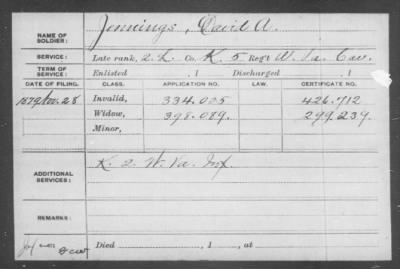 NAME OF SOLDIER: Jennings, David A.
SERVICE: Late rank, 2. L. Co. K. 5 Reg't W. Va. Cav.
TERM OF SERVICE: Enlisted , 1 Discharged , 1
DATE OF FILING. CLASS. APPLICATION NO. LAW. CERTIFICATE NO.
1879 Nov. 28 Invalid, 334.025 426.712
Widow, 398.089. 299.239.
Minor,
ADDITIONAL SERVICES: K. 2. W. Va. Inf.
REMARKS:
Died , 1 , at